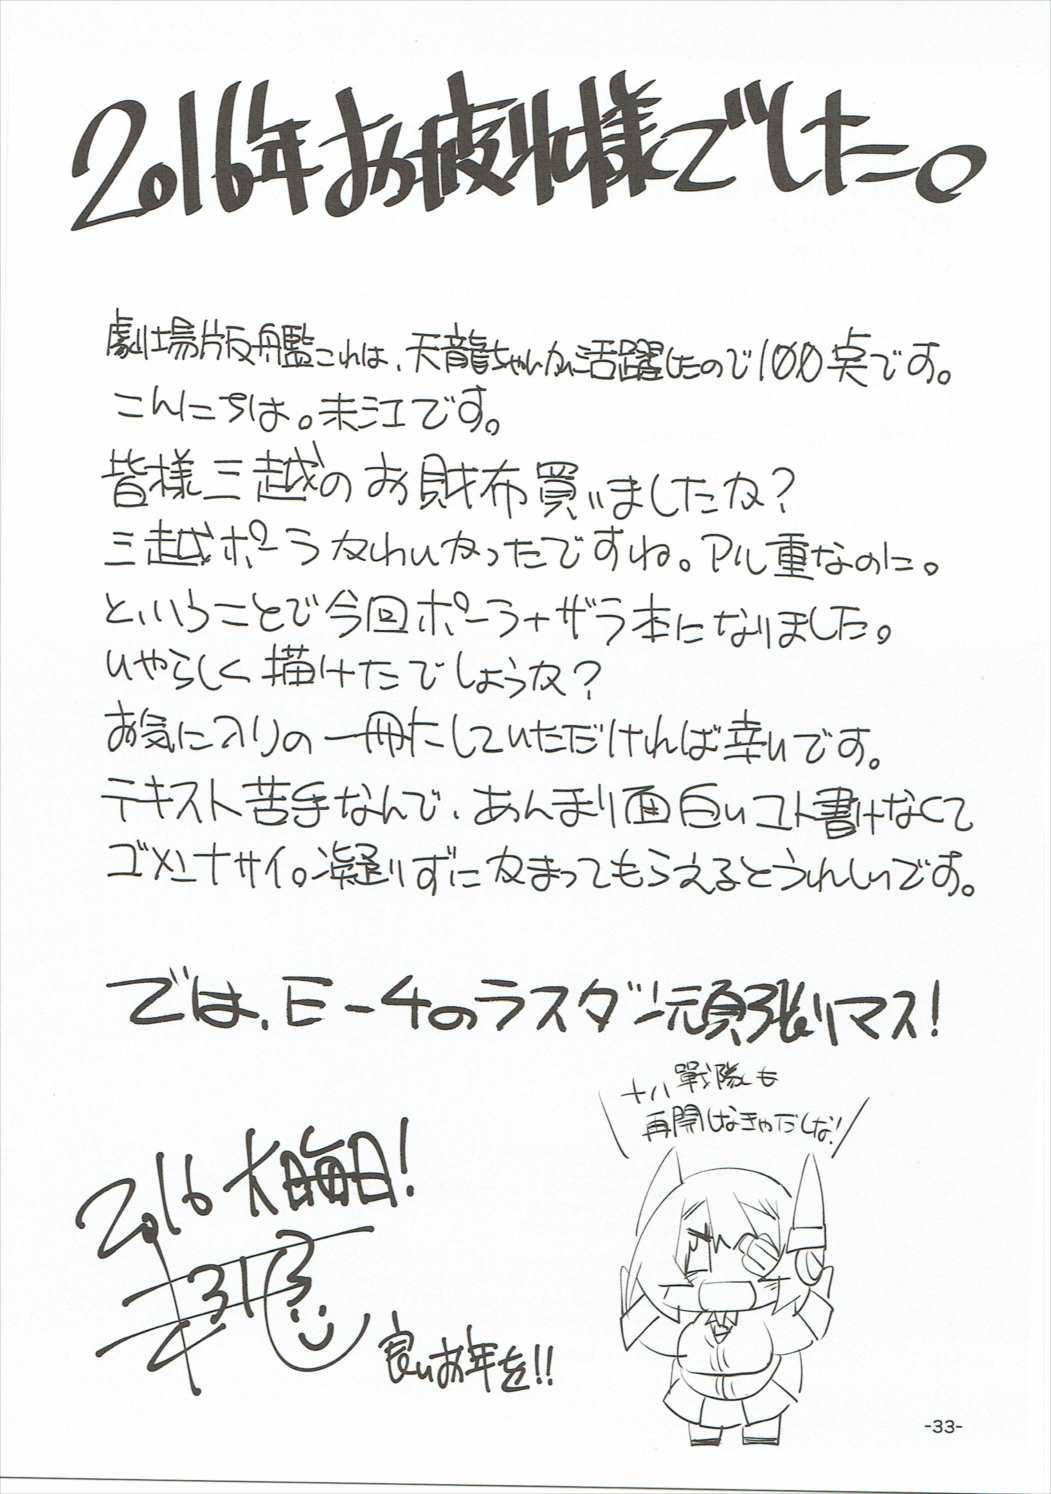 2016年お疲れ様でした。
劇場版艦これは、天龍ちゃんが活躍したので100点です。
こんにちは。未江です。
皆様三越のお財布買いましたか?
三越ポーラかわいかったですね。アル重なのに。
ということで今回ポーラ+ザラ本になりました。
いやらしく描けたでしょうか?
お気に入りの一冊にしていただければ幸いです。
テキスト苦手なんで、あんまり面白いコト書けなくて
ゴメンナサイ。凝りずにかまってもらえるとうれしいです。
では、E-4のラスダン頑張りマス!
十八戰隊も
再開しなきゃだしな!
2016 大晦日!
良いお年を!!
-33-